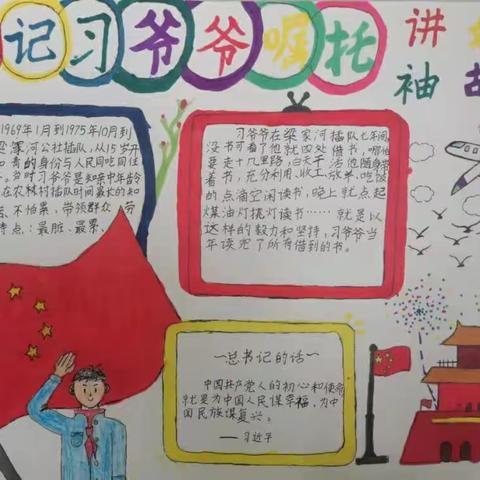 记习爷爷嘱托
讲
袖
1969年1月到1975年10月到
家河公社插队,从15岁开
青的身份与人民同吃同住
。当时习爷爷是知青中年龄
在农林村插队时间最长的知
不怕累,带领群众
特点:最脏、最累、
习爷爷在梁家河插队七年间,
没书可看了他就四处借书,哪怕
要走十几里路,白天干活他随身带
着书,充分利用、收工、放羊、吃饭
的点滴空闲读书,晚上就点起
煤油灯挑灯读书……就是以
这样的毅力和坚持,习爷爷当
年读完了所有借到的书。
~总书记的话~
中国共产党人的初心和使命
就是为中国人民谋幸福,为中
国民族谋复兴。
——习近平